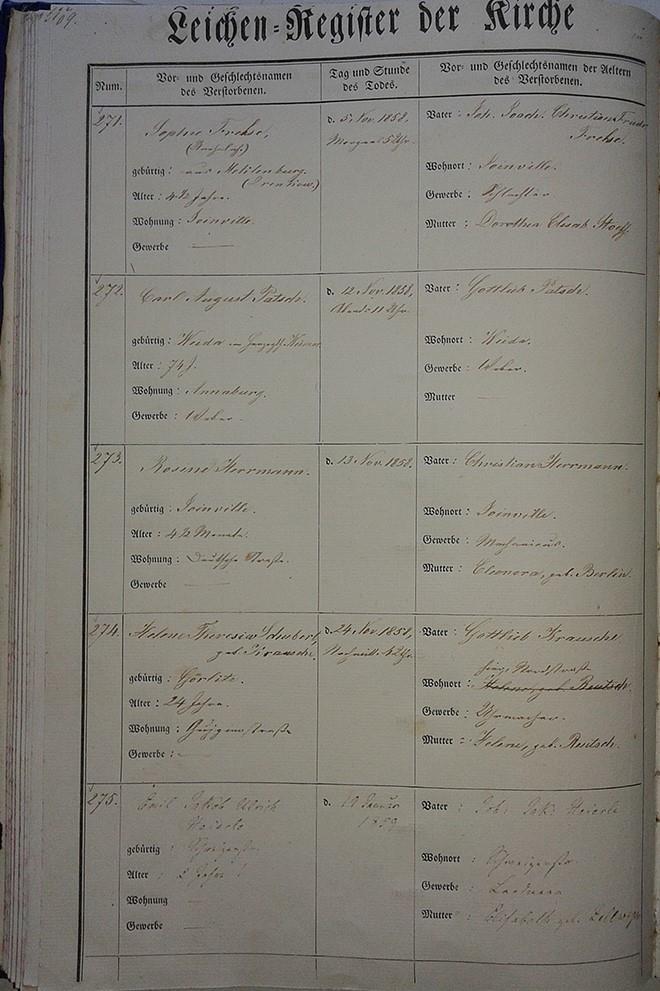 Leichen-Register der Kirche
Num.
Vor- und Geschlechtsnamen
des Verstorbenen.
Tag und Stunde
des Todes.
Vor- und Geschlechtsnamen der Aeltern
des Verstorbenen.
271.
Sophie Frehse,
gebürtig : aus Meklenburg.
Alter : 4½ Jahre.
Wohnung : Joinville.
Gewerbe
d. 5. Nov. 1858,
Morgens 5 Uhr.
Vater : Joh. Joach. Christian
Frehse.
Wohnort : Joinville.
Gewerbe : Schlachter
Mutter : Dorothea Elisab.
272.
Carl August Patsch.
gebürtig : Weida
Alter : 74 J.
Wohnung : Annaburg.
Gewerbe : Weber.
d. 12 Nov. 1858,
11 Uhr.
Vater : Gottlieb Patsch.
Wohnort : Weida.
Gewerbe : Weber.
Mutter
273.
Rosine Herrmann.
gebürtig : Joinville.
Alter : 4½ Monate.
Wohnung : Deutsche Straße.
Gewerbe
d. 13 Nov. 1858.
Vater : Christian Herrmann.
Wohnort : Joinville.
Gewerbe : Mechanicus.
Mutter : Eleonora, geb. Berlin.
274.
Helene Theresia Schubert
geb. Krausche.
gebürtig : Görlitz.
Alter : 24 Jahre.
Wohnung :
Gewerbe :
d. 24 Nov. 1858,
Nachmitt. 4 Uhr.
Vater : Gottlieb Krausche
Nordstraße
Wohnort : Rentsch.
Gewerbe : Uhrmacher.
Mutter : Helene, geb. Rentsch.
275.
Emil Jakob Ulrich
gebürtig :
Alter : 2 Jahre
Wohnung
Gewerbe
d. 19 Januar
1859
Vater : Joh. Jak.
Wohnort :
Gewerbe : Landmann
Mutter : Elisabeth geb.